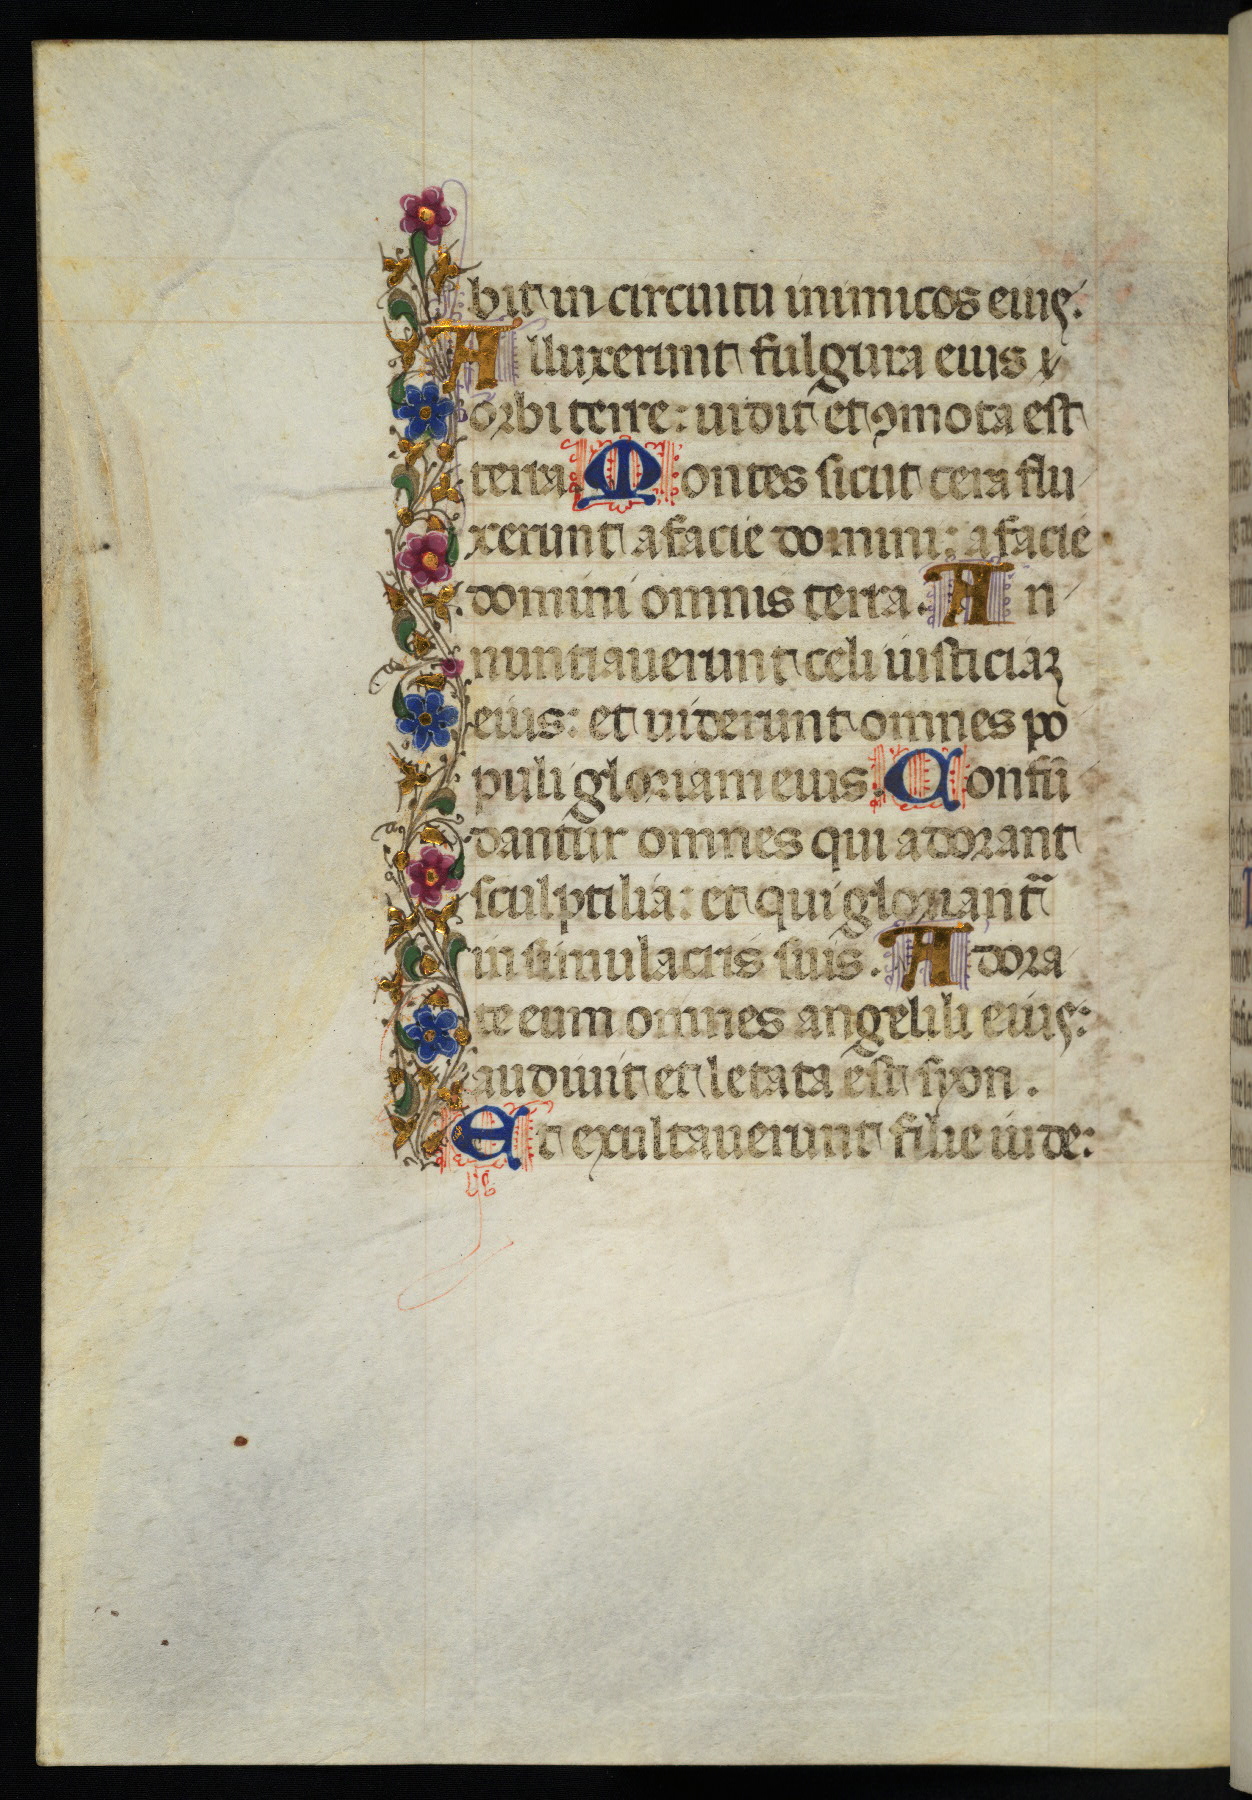 bit in circuitu inimicos eius:
Alluxerunt fulgura eius
orbi terre: uidit et ꝯmota est
terra. Montes sicut cera flu
xerunt a facie domini: a facie
domini omnis terra. An
nuntiauerunt celi iusticiaꝫ
eius: et uiderunt omnes po
puli gloriam eius. Confū
dantur omnes qui adorant
sculptilia: et qui gloriant᷑
in simulacris suis. Adora
te eum omnes angelili eius:
audiuit et letata est syon.
Et exultauerunt filie iude: